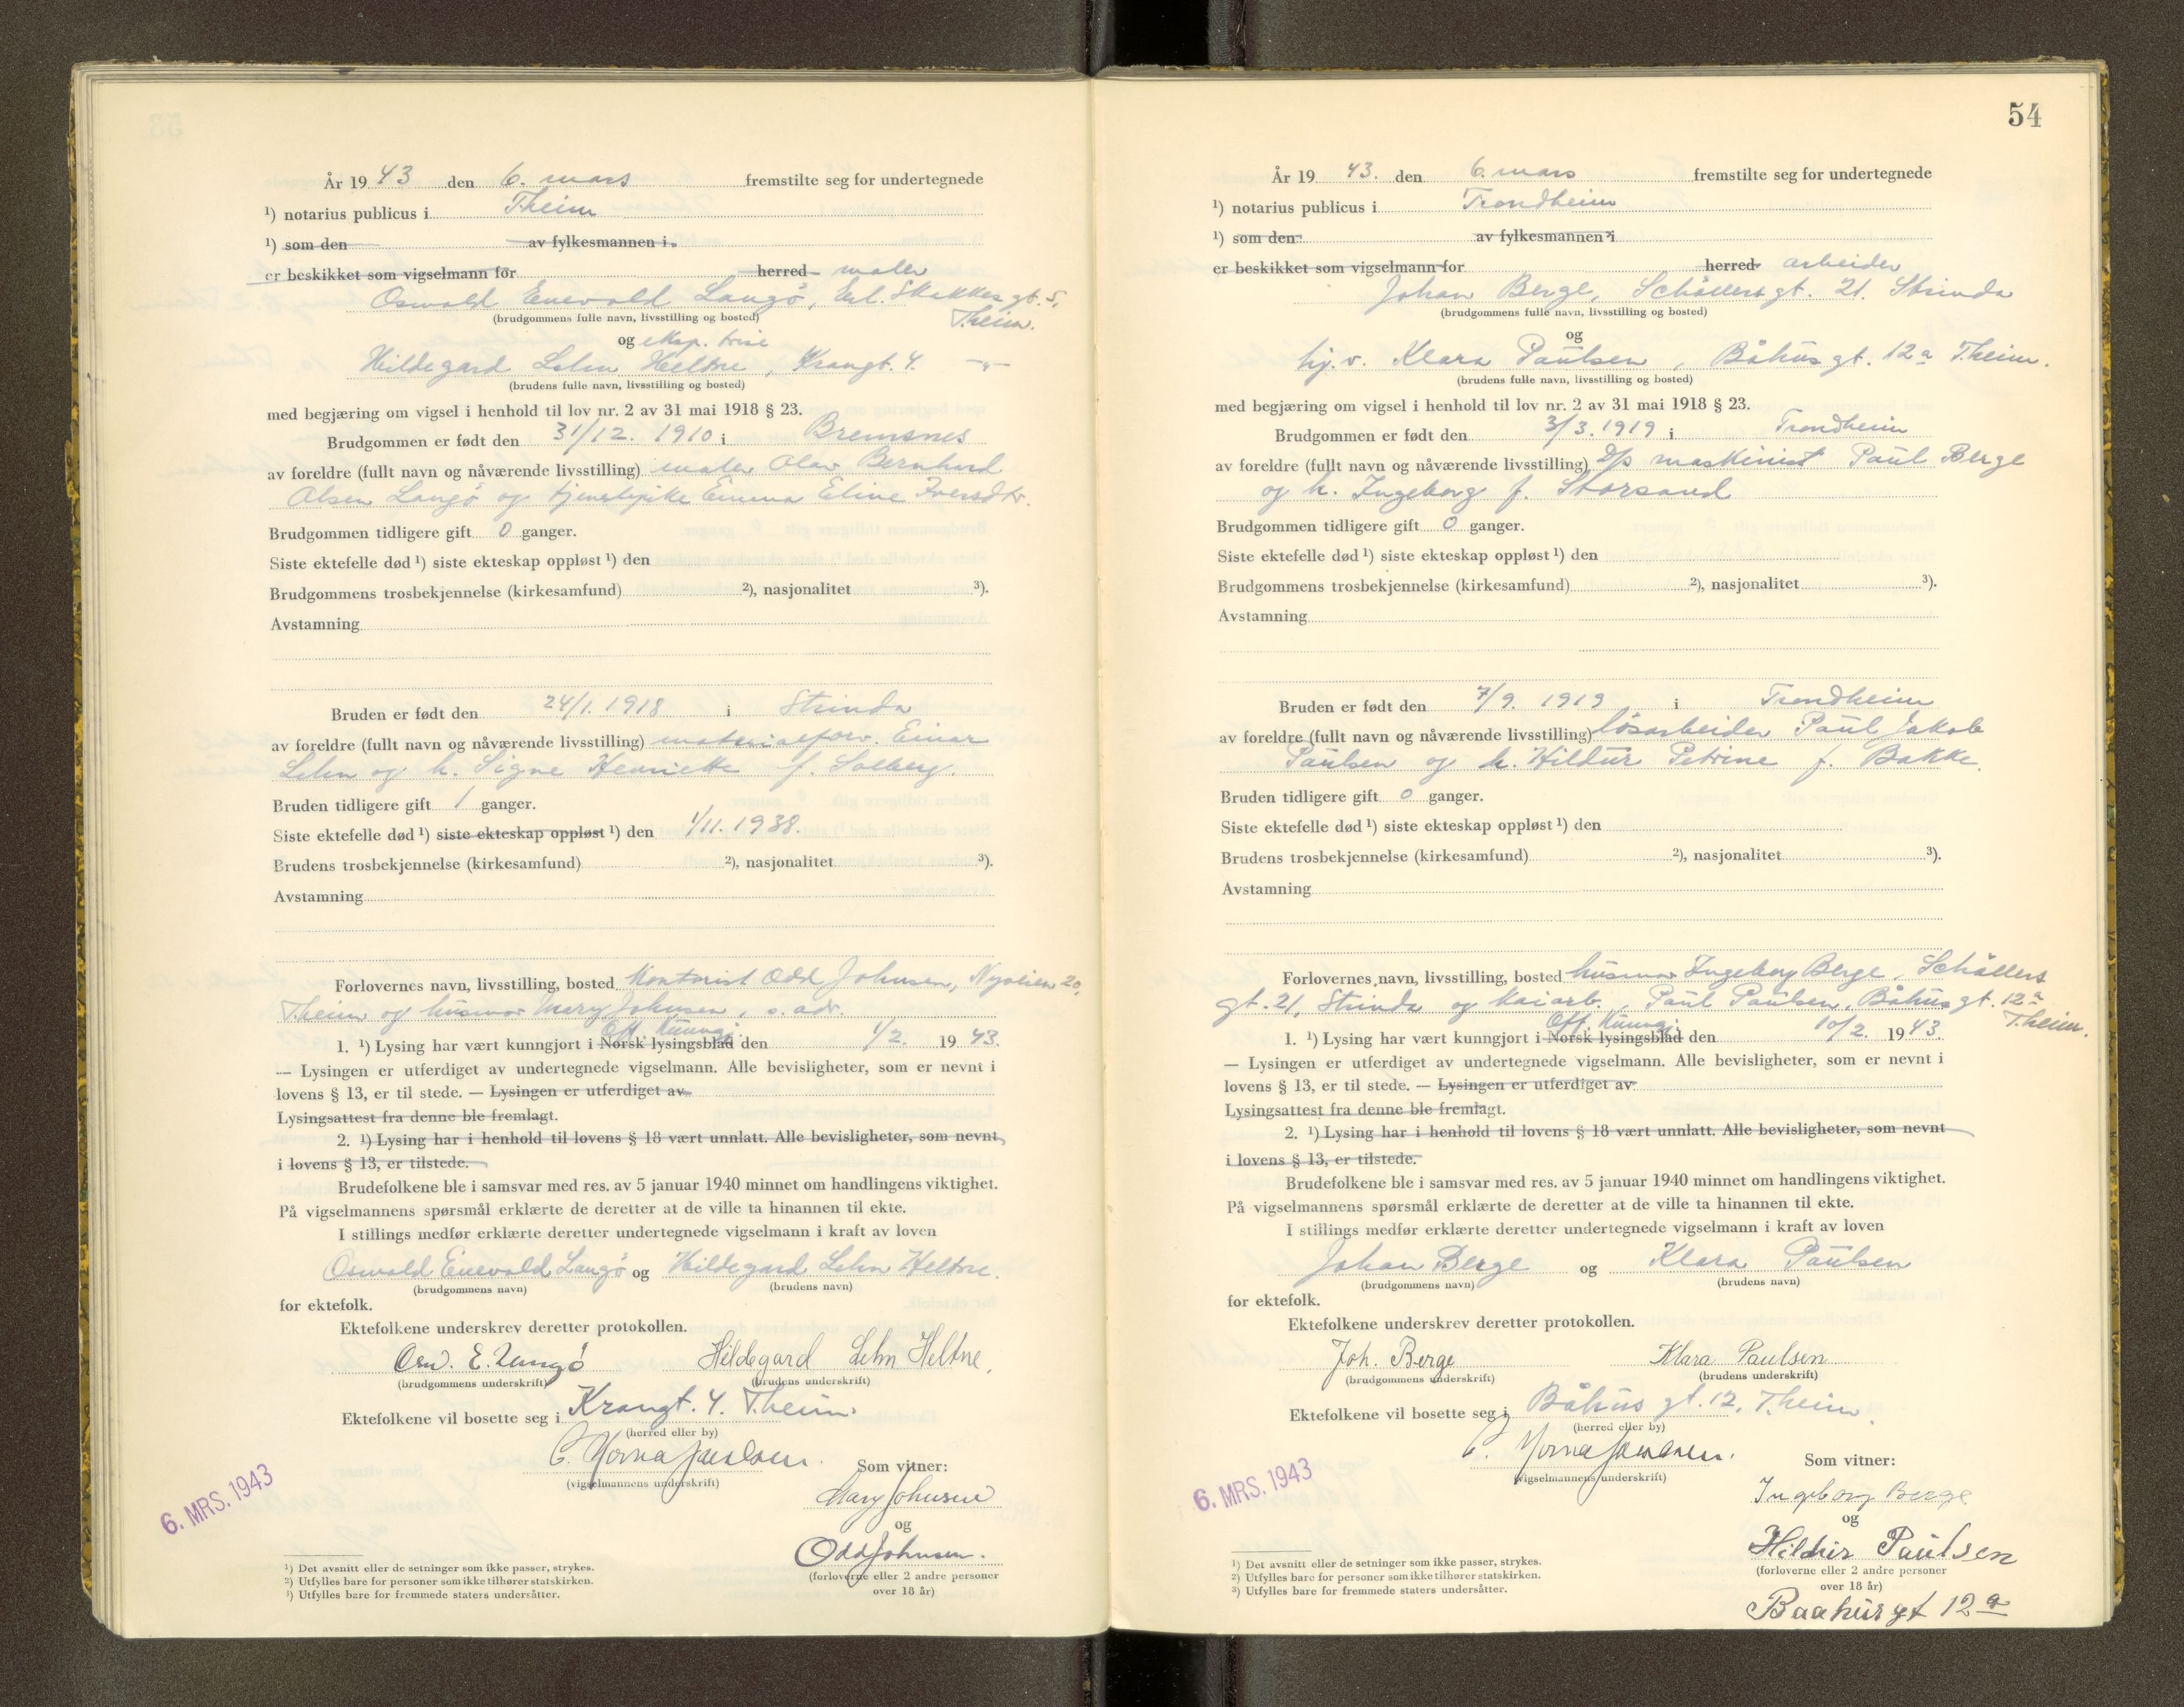 År 1943 den 6. mars fremstilte seg for undertegnede
¹) notarius publicus i T.heim
¹) som den av fylkesmannen i
er beskikket som vigselmann for herred maler
Oswald Enevald Langö, Erl. Skakkes gt. 5,
(brudgommens fulle navn, livsstilling og bosted) T.heim.
og eksp. trise
Hildegard Lehn Heltne, Krangt. 4. —„—
(brudens fulle navn, livsstilling og bosted)
med begjæring om vigsel i henhold til lov nr. 2 av 31 mai 1918 § 23.
Brudgommen er født den 31/12. 1910 i Bremsnes
av foreldre (fullt navn og nåværende livsstilling) maler Olav Bernhard
Olsen Langö og tjenestepike Emma Eline Iversdtr.
Brudgommen tidligere gift 0 ganger.
Siste ektefelle død ¹) siste ekteskap oppløst ¹) den
Brudgommens trosbekjennelse (kirkesamfund) ²), nasjonalitet ³).
Avstamning
Bruden er født den 24/1. 1918 i Strinda
av foreldre (fullt navn og nåværende livsstilling) materialforv. Einar
Lehn og h. Signe Henriette f. Solberg.
Bruden tidligere gift 1 ganger.
Siste ektefelle død ¹) siste ekteskap oppløst ¹) den 1/11. 1938.
Brudens trosbekjennelse (kirkesamfund) ²), nasjonalitet ³).
Avstamning
Forlovernes navn, livsstilling, bosted Kontorist Odd Johnsen, 20,
T.heim og husmor Mary Johnsen, s. adr.
Off. Kunngj.
1. ¹) Lysing har vært kunngjort i Norsk lysingsblad den 1/2. 1943.
— Lysingen er utferdiget av undertegnede vigselmann. Alle bevisligheter, som er nevnt i
lovens § 13, er til stede. — Lysingen er utferdiget av
Lysingsattest fra denne ble fremlagt.
2. ¹) Lysing har i henhold til lovens § 18 vært unnlatt. Alle bevisligheter, som nevnt
i lovens § 13, er tilstede.
Brudefolkene ble i samsvar med res. av 5 januar 1940 minnet om handlingens viktighet.
På vigselmannens spørsmål erklærte de deretter at de ville ta hinannen til ekte.
I stillings medfør erklærte deretter undertegnede vigselmann i kraft av loven
Oswald Enevald Langö og Hildegard Lehn Heltne.
(brudgommens navn) (brudens navn)
for ektefolk.
Ektefolkene underskrev deretter protokollen.
Osw. E. Langö Hildegard Lehn Heltne.
(brudgommens underskrift) (brudens underskrift)
Ektefolkene vil bosette seg i Krangt. 4. T.heim.
(herred eller by)
(vigselmannens underskrift) Som vitner:
6. MRS. 1943
Mary Johnsen
og
Odd Johnsen.
(forloverne eller 2 andre personer
over 18 år)
¹) Det avsnitt eller de setninger som ikke passer, strykes.
²) Utfylles bare for personer som ikke tilhører statskirken.
³) Utfylles bare for fremmede staters undersåtter.
54
År 1943. den 6. mars fremstilte seg for undertegnede
¹) notarius publicus i Trondheim
¹) som den av fylkesmannen i
er beskikket som vigselmann for herred arbeider
Johan Berge, Schøllers gt. 21. Strinda
(brudgommens fulle navn, livsstilling og bosted)
og
hj. v. Klara Paulsen, Båhus gt. 12a T.heim.
(brudens fulle navn, livsstilling og bosted)
med begjæring om vigsel i henhold til lov nr. 2 av 31 mai 1918 § 23.
Brudgommen er født den 3/3. 1919 i Trondheim
av foreldre (fullt navn og nåværende livsstilling) D/s maskinist Paul Berge
og h. Ingeborg f. Storsand
Brudgommen tidligere gift 0 ganger.
Siste ektefelle død ¹) siste ekteskap oppløst ¹) den
Brudgommens trosbekjennelse (kirkesamfund) ²), nasjonalitet ³).
Avstamning
Bruden er født den 7/9. 1919 i Trondheim
av foreldre (fullt navn og nåværende livsstilling) løsarbeider Paul Jakob
Paulsen og h. Hildur Petrine f. Bakke.
Bruden tidligere gift 0 ganger.
Siste ektefelle død ¹) siste ekteskap oppløst ¹) den
Brudens trosbekjennelse (kirkesamfund) ²), nasjonalitet ³).
Avstamning
Forlovernes navn, livsstilling, bosted husmor Ingeborg Berge, Schøllers
gt. 21, Strinda og kaiarb. Paul Paulsen, Båhus gt. 12a
Off. Kunngj. T.heim.
1. ¹) Lysing har vært kunngjort i Norsk lysingsblad den 10/2. 1943.
— Lysingen er utferdiget av undertegnede vigselmann. Alle bevisligheter, som er nevnt i
lovens § 13, er til stede. — Lysingen er utferdiget av
Lysingsattest fra denne ble fremlagt.
2. ¹) Lysing har i henhold til lovens § 18 vært unnlatt. Alle bevisligheter, som nevnt
i lovens § 13, er tilstede.
Brudefolkene ble i samsvar med res. av 5 januar 1940 minnet om handlingens viktighet.
På vigselmannens spørsmål erklærte de deretter at de ville ta hinannen til ekte.
I stillings medfør erklærte deretter undertegnede vigselmann i kraft av loven
Johan Berge og Klara Paulsen
(brudgommens navn) (brudens navn)
for ektefolk.
Ektefolkene underskrev deretter protokollen.
Joh. Berge Klara Paulsen
(brudgommens underskrift) (brudens underskrift)
Ektefolkene vil bosette seg i Båhus gt. 12. T.heim.
(herred eller by)
(vigselmannens underskrift) Som vitner:
6. MRS. 1943
Ingeborg Berge
og
Hildur Paulsen
(forloverne eller 2 andre personer
over 18 år)
Baahus gt 12a
¹) Det avsnitt eller de setninger som ikke passer, strykes.
²) Utfylles bare for personer som ikke tilhører statskirken.
³) Utfylles bare for fremmede staters undersåtter.